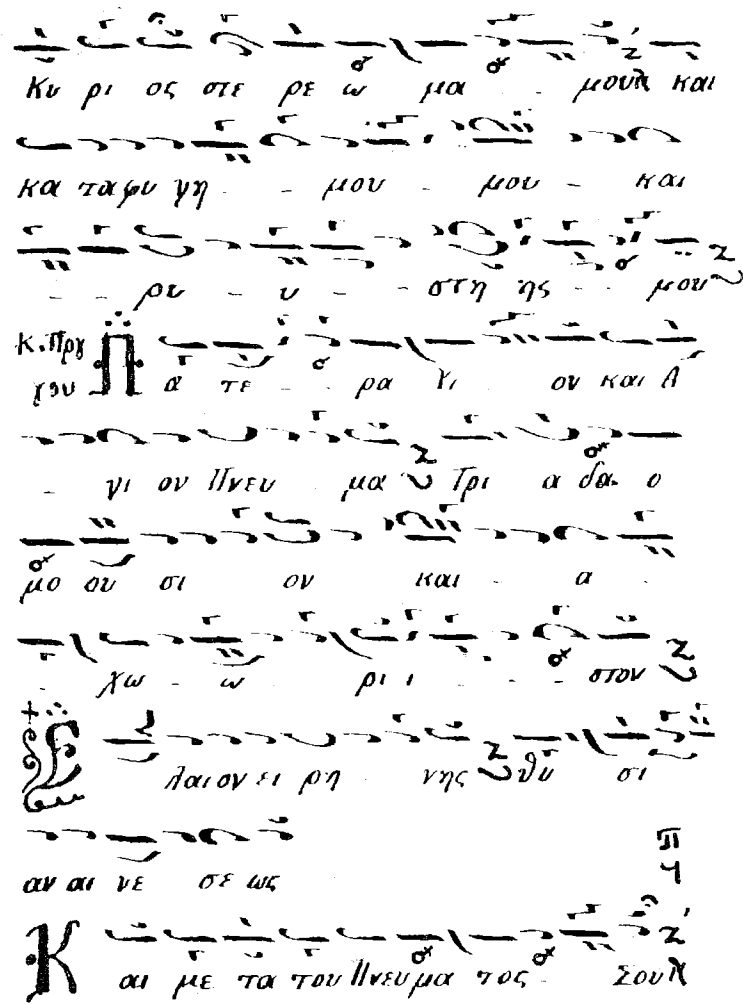 Κυ ρι ος στε ρε ω μα μου και
κα τα φυ γη μου μου και
ρυ υ στη ης μου
Κ. Πρχ Πα τε ρα Υι ον και Α
χου
γι ον Πνευ μα Τρι α δα ο
μο ου σι ον και α
χω ω ρι ι στον
Ε λαι ον ει ρη νης θυ σι
αν αι νε σε ως
Και με τα του Πνευ μα τος Σου